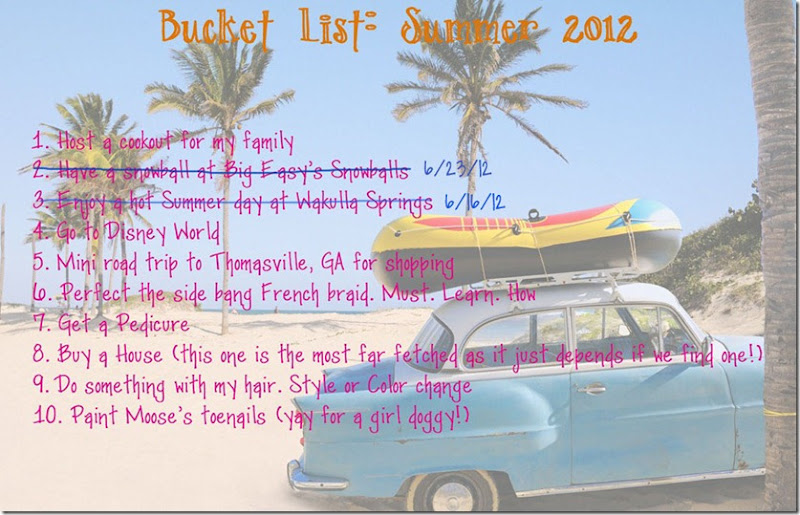 Bucket List: Summer 2012
1. Host a cookout for my family
2. Have a snowball at Big Easy's Snowballs 6/23/12
3. Enjoy a hot Summer day at Wakulla Springs 6/16/12
4. Go to Disney World
5. Mini road trip to Thomasville, GA for shopping
6. Perfect the side bang French braid. Must. Learn. How
7. Get a Pedicure
8. Buy a House (this one is the most far fetched as it just depends if we find one!)
9. Do something with my hair. Style or Color change
10. Paint Moose's toenails (yay for a girl doggy!)